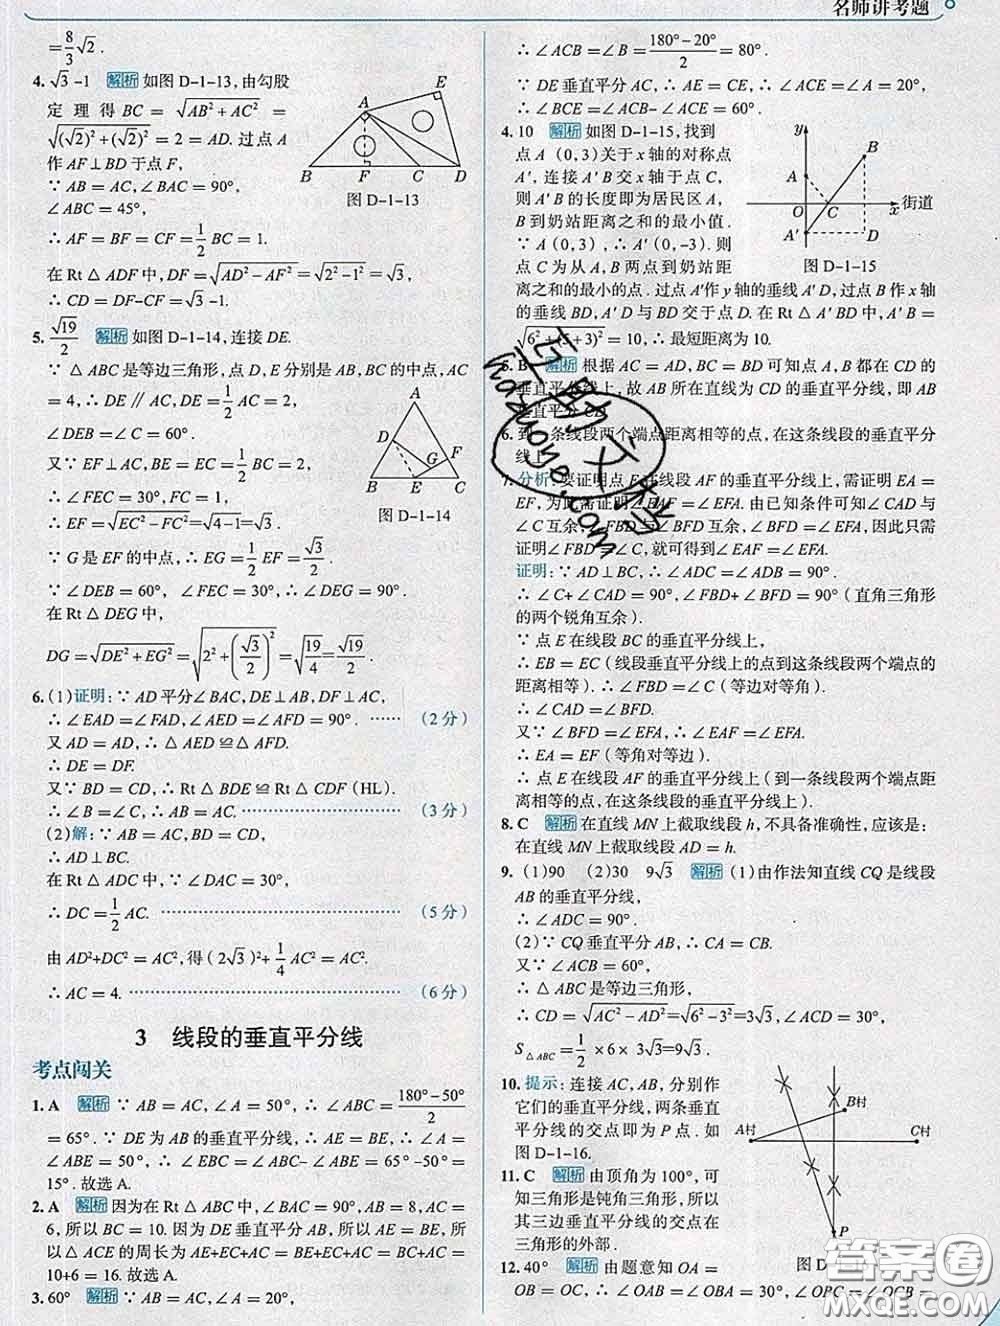 名师讲考题
=8/3√2.
4. √3-1 解析 如图 D-1-13,由勾股
定理得 BC = √(AB²+AC²) =
√((√2)²+(√2)²) = 2 = AD. 过点 A
作 AF⊥BD 于点 F,
∵ AB = AC,∠BAC = 90°,
∠ABC = 45°,
∴ AF = BF = CF = 1/2 BC = 1.
A
E
B
F
C
D
图 D-1-13
在 Rt△ADF 中,DF = √(AD²-AF²) = √(2²-1²) = √3,
∴ CD = DF-CF = √3-1.
5. √19/2 解析 如图 D-1-14,连接 DE.
∵ △ABC 是等边三角形,点 D,E 分别是 AB,BC 的中点,AC
= 4,∴ DE∥AC,DE = 1/2 AC = 2,
∠DEB = ∠C = 60°.
又∵ EF⊥AC,EC = 1/2 BC = 2,
∴ ∠FEC = 30°,FC = 1,
∴ EF = √(EC²-FC²) = √(4-1) = √3.
A
D
G
F
B
E
C
图 D-1-14
∵ G 是 EF 的中点,∴ EG = 1/2 EF = √3/2.
∵ ∠DEB = 60°, ∠FEC = 30°,∴ ∠DEG = 90°.
在 Rt△DEG 中,
DG = √(DE²+EG²) = √(2²+(√3/2)²) = √(19/4) = √19/2.
6. (1)证明:∵ AD 平分∠BAC,DE⊥AB,DF⊥AC,
∴ ∠EAD = ∠FAD,∠AED = ∠AFD = 90°. …… (2 分)
又 AD = AD,∴ △AED≌△AFD.
∴ DE = DF.
又∵ BD = CD,∴ Rt△BDE≌Rt△CDF(HL).
∴ ∠B = ∠C,∴ AB = AC. …… (3 分)
(2)解:∵ AB = AC,BD = CD,
∴ AD⊥BC.
在 Rt△ADC 中,∵ ∠DAC = 30°,
∴ DC = 1/2 AC. …… (5 分)
由 AD²+DC² = AC²,得(2√3)²+1/4 AC² = AC².
∴ AC = 4. …… (6 分)
3 线段的垂直平分线
考点闯关
1. A 解析 ∵ AB = AC,∠A = 50°,∴ ∠ABC = (180°-50°)/2
= 65°. ∵ DE 为 AB 的垂直平分线,∴ AE = BE,∴ ∠A =
∠ABE = 50°,∴ ∠EBC = ∠ABC-∠ABE = 65°-50° =
15°. 故选 A.
2. A 解析 因为在 Rt△ABC 中,∠BAC = 90°,AB = 8,AC =
6,所以 BC = 10. 因为 DE 垂直平分 AB,所以 AE = BE,所
以△ACE 的周长为 AE+EC+AC = BE+EC+AC = BC+AC =
10+6 = 16. 故选 A.
3. 60° 解析 ∵ AB = AC,∠A = 20°,
∴ ∠ACB = ∠B = (180°-20°)/2 = 80°.
∵ DE 垂直平分 AC,∴ AE = CE,∴ ∠ACE = ∠A = 20°,
∴ ∠BCE = ∠ACB-∠ACE = 60°.
4. 10 解析 如图 D-1-15,找到
点 A (0,3)关于 x 轴的对称点
A′,连接 A′B 交 x 轴于点 C,
则 A′B 的长度即为居民区 A,
B 到奶站距离之和的最小值.
∵ A (0,3),∴ A′(0,-3). 则
点 C 为从 A,B 两点到奶站距
y
B
A
O
C
x
街道
A′
D
图 D-1-15
离之和的最小的点. 过点 A′作 y 轴的垂线 A′D,过点 B 作 x
轴的垂线 BD,A′D 与 BD 交于点 D. 在 Rt△A′BD 中,A′B =
√(6²+(5+3)²) = 10,∴ 最短距离为 10.
5. B 解析 根据 AC = AD,BC = BD 可知点 A,B 都在 CD 的
垂直平分线上,故 AB 所在直线为 CD 的垂直平分线,即 AB
垂直平分 CD.
6. 到一条线段两个端点距离相等的点,在这条线段的垂直平分
线上
7. 分析:要证明点 E 在线段 AF 的垂直平分线上,需证明 EA =
EF,为此需证明∠EAF = ∠EFA. 由已知条件可知∠CAD 与
∠C 互余,∠FBD 与∠BFD 互余,∠BFD = ∠EFA,因此只需
证明∠FBD = ∠C,就可得到∠EAF = ∠EFA.
证明:∵ AD⊥BC,∴ ∠ADC = ∠ADB = 90°.
∴ ∠C+∠CAD = 90°,∠FBD+∠BFD = 90°(直角三角形
的两个锐角互余).
∵ 点 E 在线段 BC 的垂直平分线上,
∴ EB = EC(线段垂直平分线上的点到这条线段两个端点的
距离相等). ∴ ∠FBD = ∠C(等边对等角).
∴ ∠CAD = ∠BFD.
又∵ ∠BFD = ∠EFA,∴ ∠EAF = ∠EFA.
∴ EA = EF(等角对等边).
∴ 点 E 在线段 AF 的垂直平分线上(到一条线段两个端点距
离相等的点,在这条线段的垂直平分线上).
8. C 解析 在直线 MN 上截取线段 h,不具备准确性,应该是:
在直线 MN 上截取线段 AD = h.
9. (1)90 (2)30 9√3 解析 (1)由作法知直线 CQ 是线段
AB 的垂直平分线,
∴ ∠ADC = 90°.
(2)∵ CQ 垂直平分 AB,∴ CA = CB.
又∵ ∠ACB = 60°,
∴ △ABC 是等边三角形,
∴ CD = √(AC²-AD²) = √(6²-3²) = 3√3,
S△ABC = 1/2 ×6× 3√3 = 9√3.
10. 提示:连接 AC,AB,分别作
它们的垂直平分线,两条垂直
平分线的交点即为 P 点. 如
图 D-1-16.
11. C 解析 由顶角为 100°,可
知三角形是钝角三角形,所以
其三边垂直平分线的交点在
三角形的外部.
A村
B村
C村
P
图 D-1-16
12. 40° 解析 由题意知 OA =
OB = OC,∴ ∠OAB = ∠OBA = 30°,∴ ∠OBC = ∠OCB
hazuoye.com
答案圈
MXQE.COM